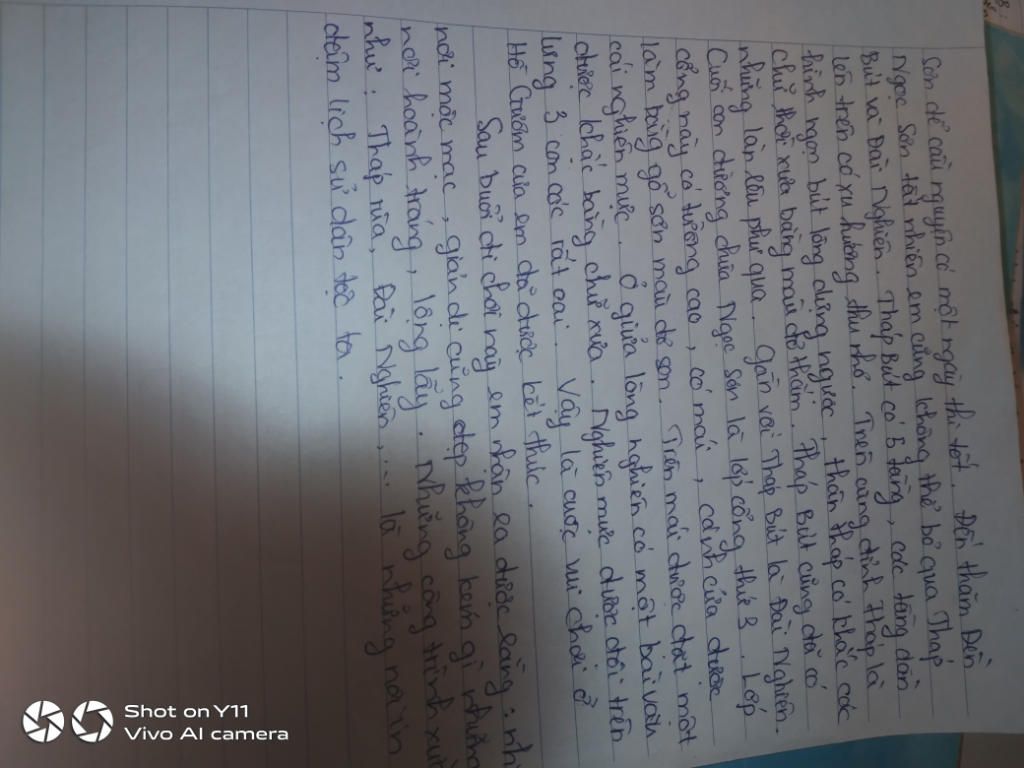 Sơn để cầu nguyện có một ngày thi tốt. Đến thăm Đền
Ngọc Sơn tất nhiên em cũng không thể bỏ qua Tháp
Bút và Đài Nghiên. Tháp Bút có 5 tầng, các tầng dần
lên trên có xu hướng thu nhỏ. Trên cùng đỉnh tháp là
hình ngọn bút lông dựng ngược, thân tháp có khắc các
chữ thời xưa bằng màu đỏ thẫm. Tháp Bút cũng đã có
những lần tu phí qua. Gần với Tháp Bút là Đài Nghiên.
Cuối con đường chùa Ngọc Sơn là lớp cổng thứ 3. Lớp
cổng này có tường cao, có mái, cánh cửa được
làm bằng gỗ sơn màu đỏ son. Trên mái được đặt một
cái nghiên mực. Ở giữa lòng nghiên có một bài văn
được khắc bằng chữ xưa. Nghiên mực được đội trên
lưng 3 con cóc rất oai. Vậy là cược vui chơi ở
Hồ Gươm của em đã được kết thúc.
Sau buổi đi chơi này em nhận ra được rằng: nh
nơi mộc mạc, giản dị cũng đẹp không kém gì những
nơi hoành tráng, lộng lẫy. Những công trình xư
như: Tháp rùa, Đài Nghiên,... là những nơi in
đậm lịch sử dân tộc ta.
Shot on Y11
Vivo AI camera